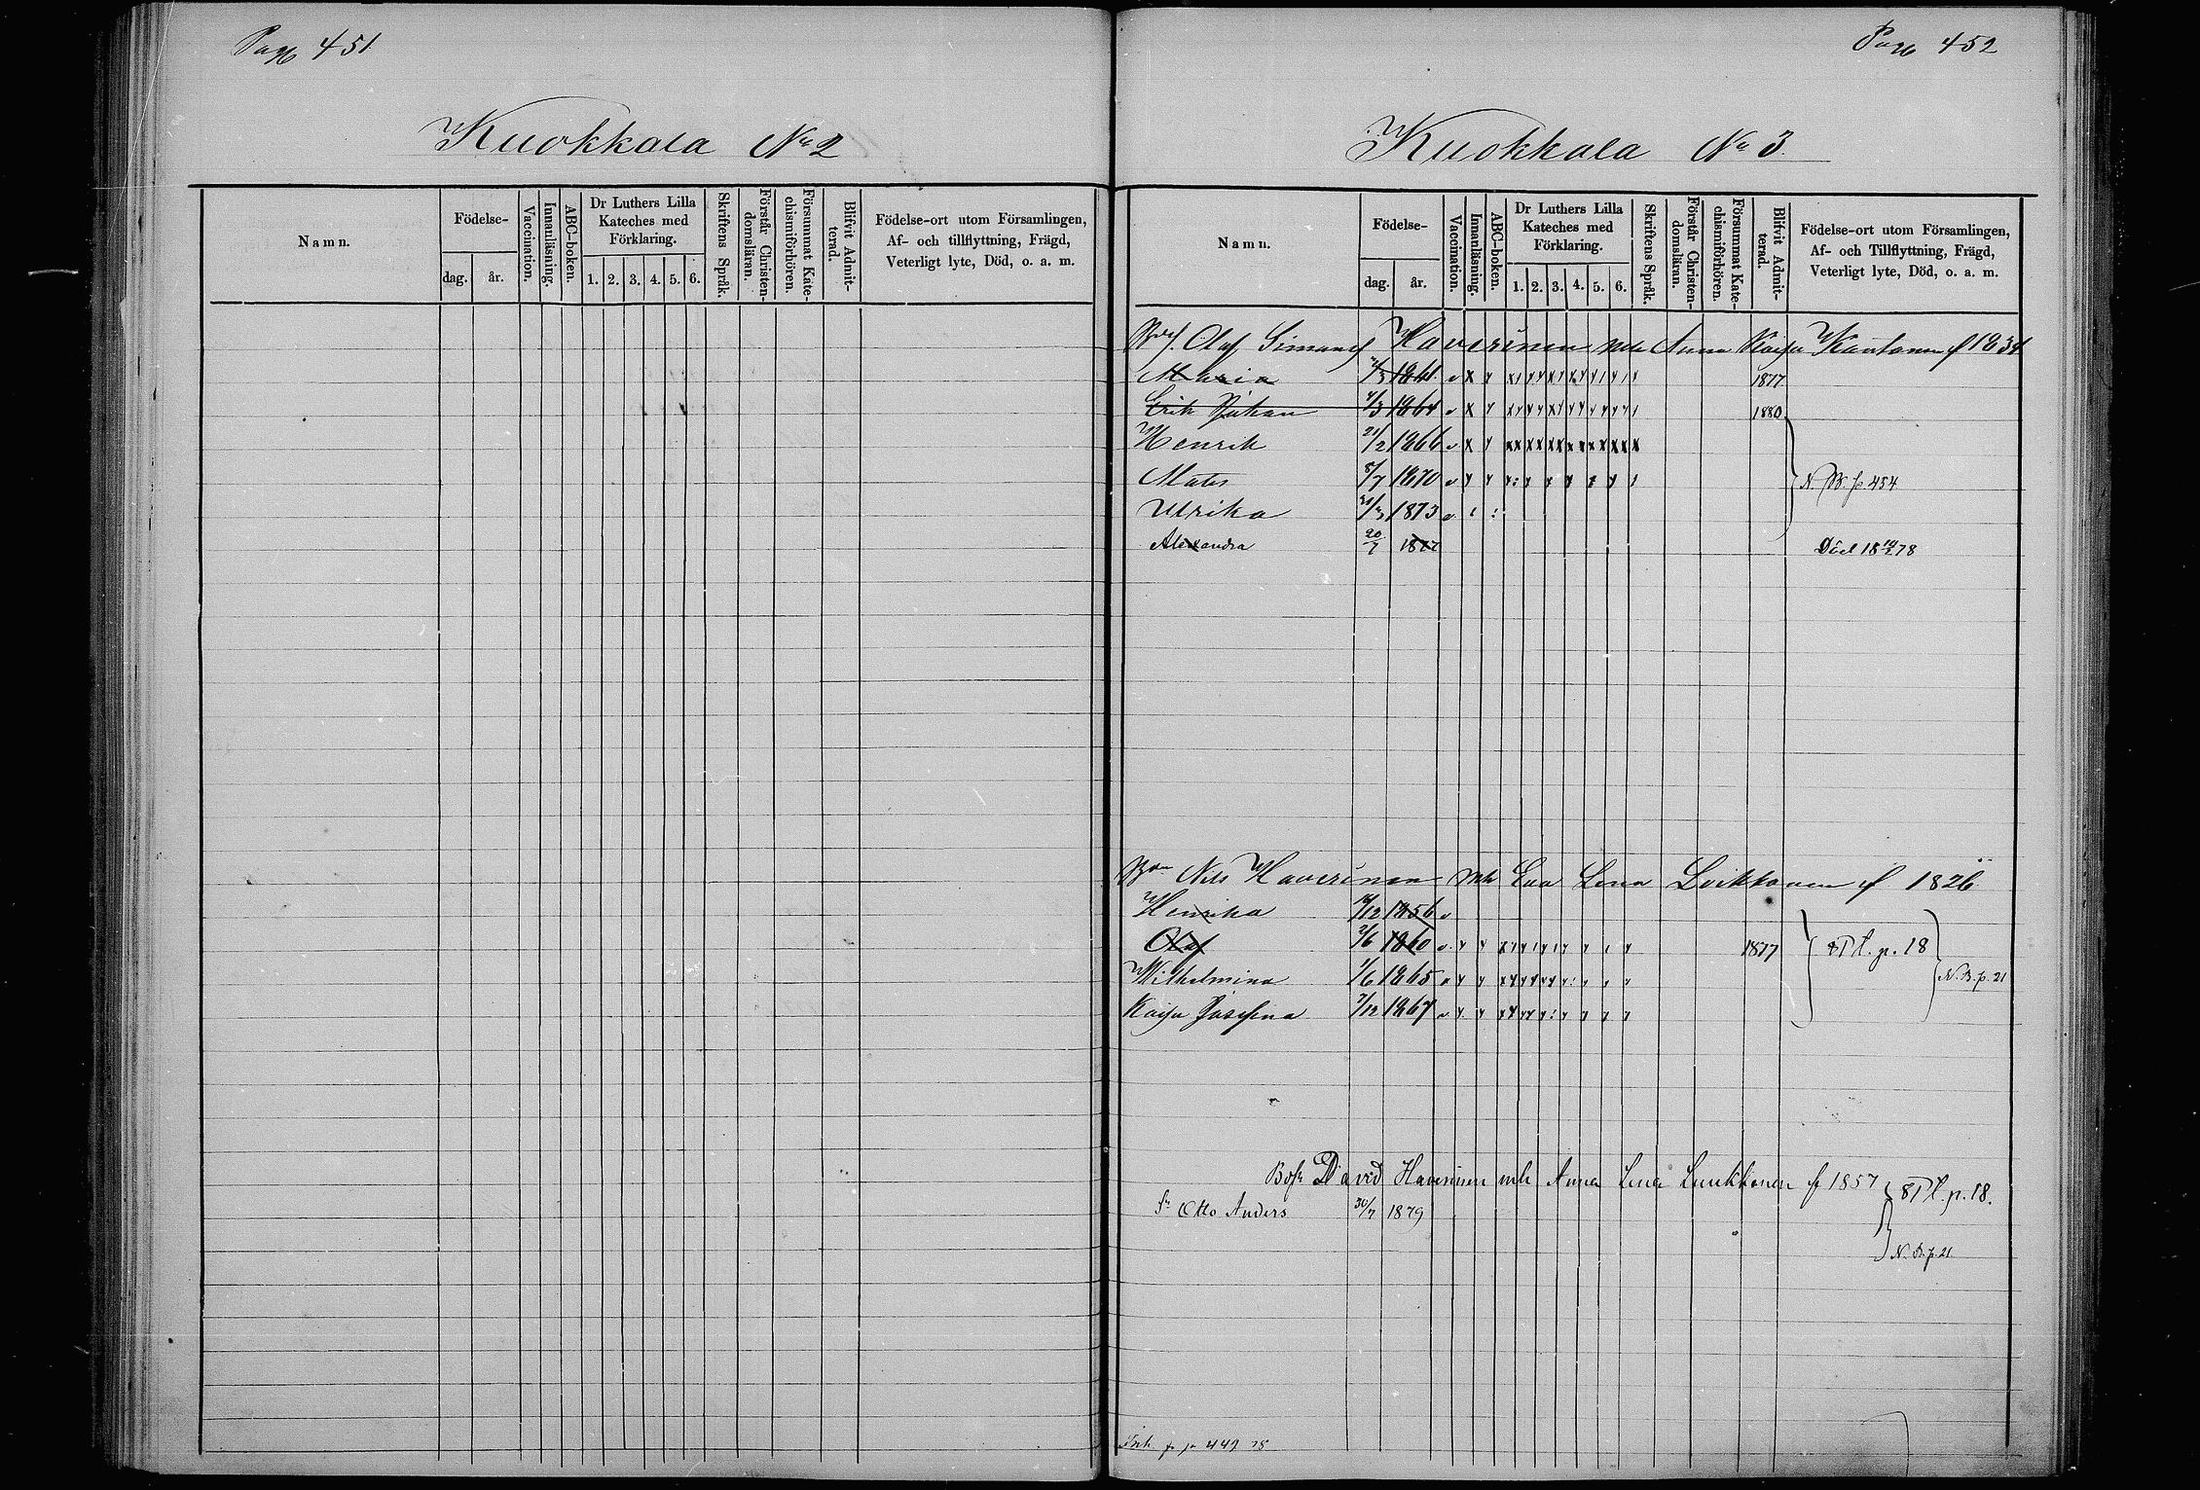 Pag 451
Kuokkala No 2
Namn.
Födelse-
dag.
år.
Vaccination.
Innanläsning.
ABC-boken.
Dr Luthers Lilla
Kateches med
Förklaring.
1. 2. 3. 4. 5. 6.
Skriftens Språk.
Förstår Christen-
domsläran.
Försummat Kate-
chismiförhören.
Blifvit Admit-
terad.
Födelse-ort utom Församlingen,
Af- och tillflyttning, Frägd,
Veterligt lyte, Död, o. a. m.
Pag 452
Kuokkala No 3.
Namn.
Födelse-
dag.
år.
Vaccination.
Innanläsning.
ABC-boken.
Dr Luthers Lilla
Kateches med
Förklaring.
1. 2. 3. 4. 5. 6.
Skriftens Språk.
Förstår Christen-
domsläran.
Försummat Kate-
chismiförhören.
Blifvit Admit-
terad.
Födelse-ort utom Församlingen,
Af- och Tillflyttning, Frägd,
Veterligt lyte, Död, o. a. m.
Olof Simonsf Haverinen mh Anna Kaisa Kantonen f 1834
Maria 1861 1877
Erik Johan 1864 1880
Henrik 21/2 1866
Mats 8/7 1870 N. B. p 454
Ulrika 1873
Alexandra 20/7 1877 Död 18 78
Nils Haverinen mh Eva Lena Loikkanen f 1826
Henrika 1856
Olof 2/6 1860 1877 Pl. p. 18
Wilhelmina 1/6 1865 N. B. p. 21
Kaisa Josefina 7/12 1867
David Haverinen mh Anna Lena Luukkonen f 1857 Pl. p. 18.
Otto Anders 30/7 1879
N. B. p. 21
p 449